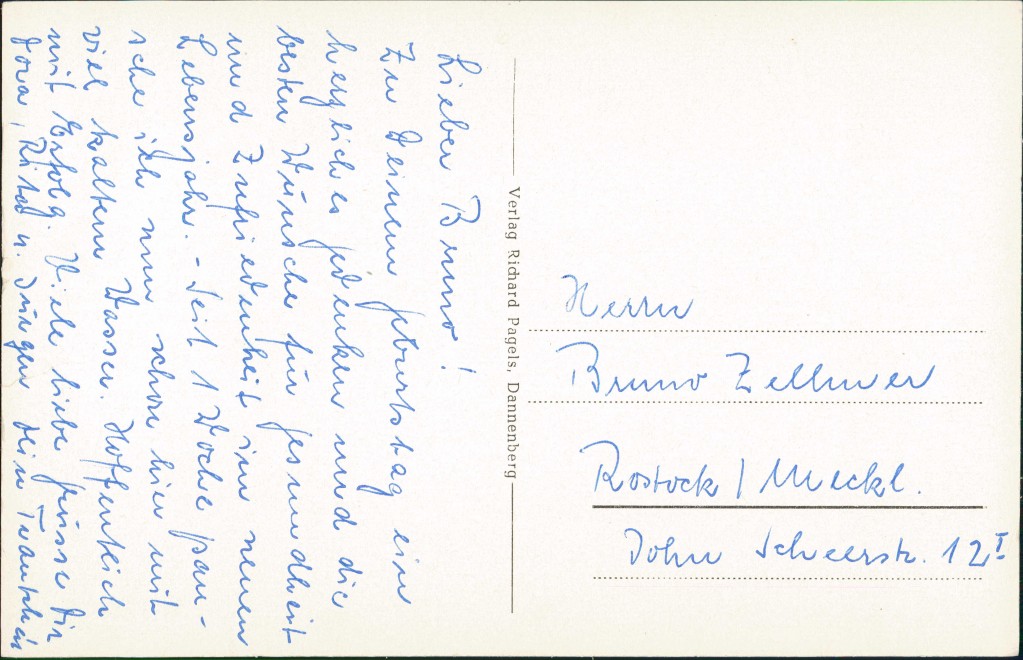 Lieber Bruno!
Zu Deinem Geburtstag ein
herzliches Gedenken und die
besten Wünsche für Gesundheit
und Zufriedenheit im neuen
Lebensjahr. - Seit 1 Woche pan-
sche ich nun schon hier mit
viel kaltem Wasser. Hoffentlich
mit Erfolg. Viele liebe Grüsse Dir
Dora, u. Jungen Dein
Verlag Richard Pagels, Dannenberg
Herrn
Bruno Zellmer
Rostock / Meckl.
John Scheerstr. 12 I